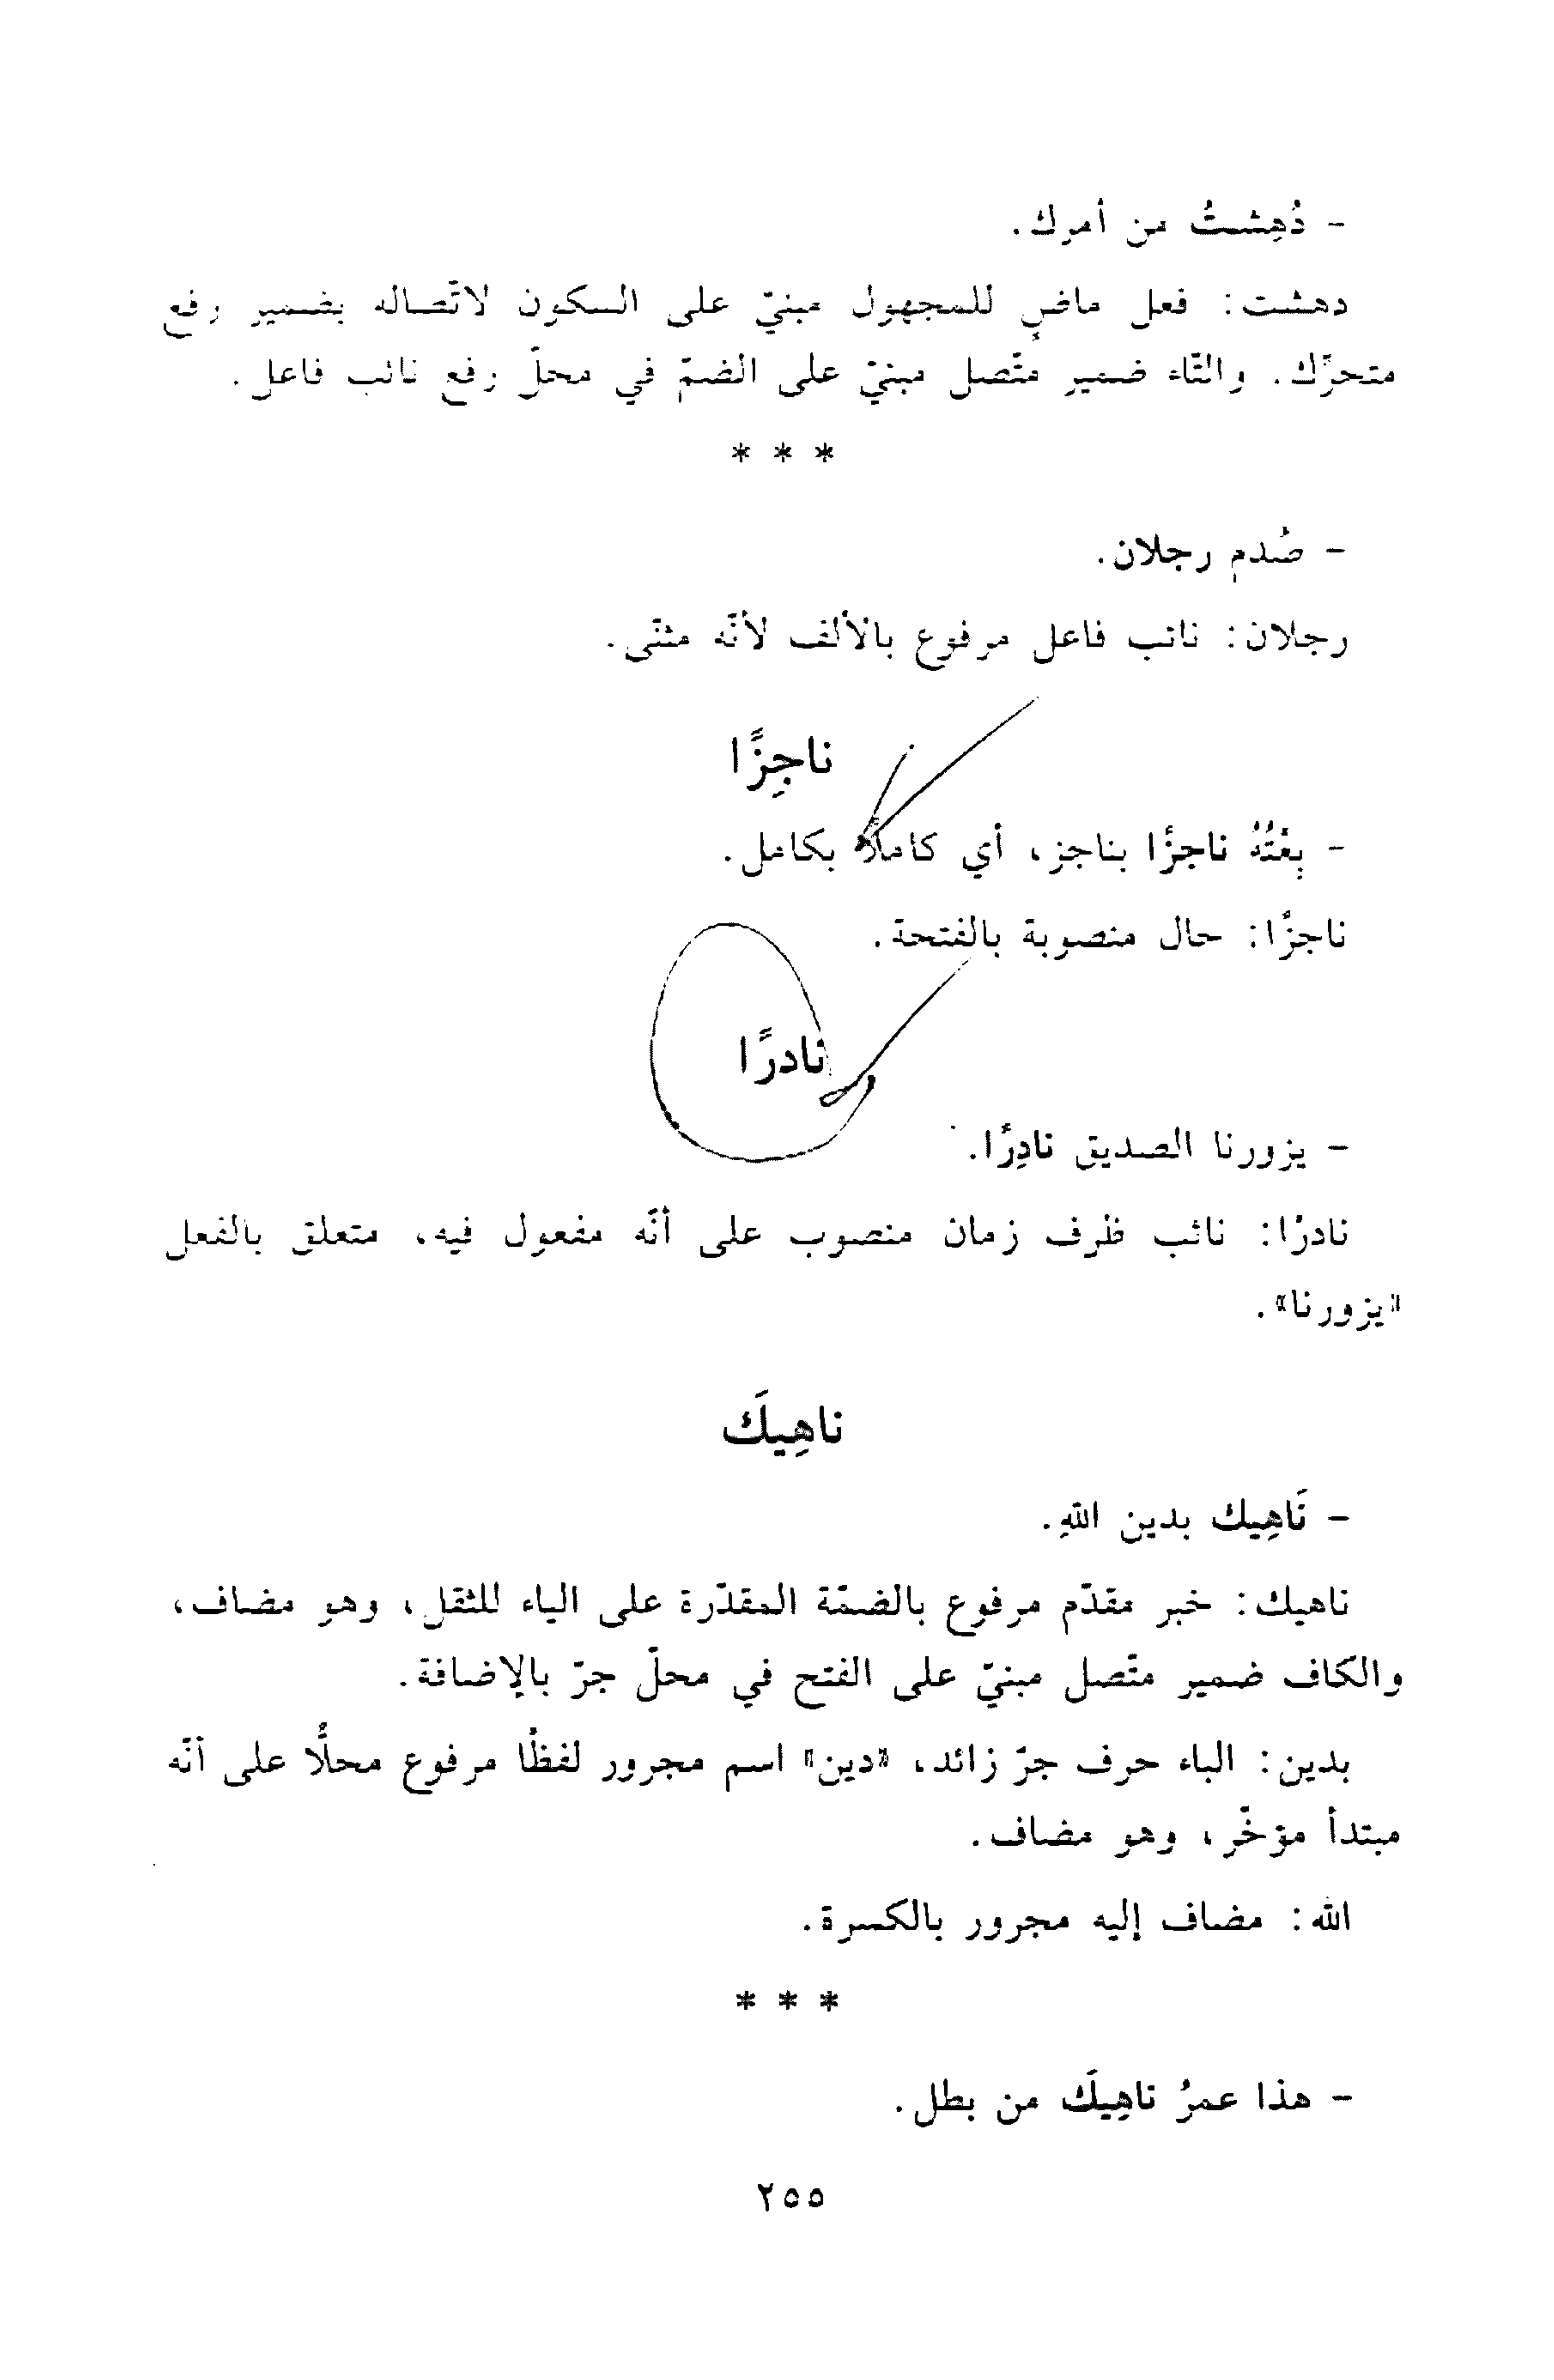 - دُهِشتُ من أمرك.
دهشت: فعل ماضٍ للمجهول مبنيّ على السكون لاتّصاله بضمير رفع
متحرّك. والتّاء ضمير متّصل مبنيّ على الضمّ في محلّ رفع نائب فاعل.
* * *
- صُدم رجلان.
رجلان: نائب فاعل مرفوع بالألف لأنّه مثنّى.
ناجِزًا
- بِعْتُهُ ناجزًا بناجز، أي كاملًا بكامل.
ناجزًا: حال منصوبة بالفتحة.
نادرًا
- يزورنا الصديق نادِرًا.
نادرًا: نائب ظرف زمان منصوب على أنّه مفعول فيه، متعلق بالفعل
«يزورنا».
ناهِيكَ
- نَاهِيك بدين اللهِ.
ناهيك: خبر مقدّم مرفوع بالضمّة المقدّرة على الياء للثقل، وهو مضاف،
والكاف ضمير متّصل مبنيّ على الفتح في محلّ جرّ بالإضافة.
بدين: الباء حرف جرّ زائد، «دين» اسم مجرور لفظًا مرفوع محلًّا على أنّه
مبتدأ مؤخّر، وهو مضاف.
الله: مضاف إليه مجرور بالكسرة.
* * *
- هذا عمرُ ناهِيكَ من بطل.
٢٥٥